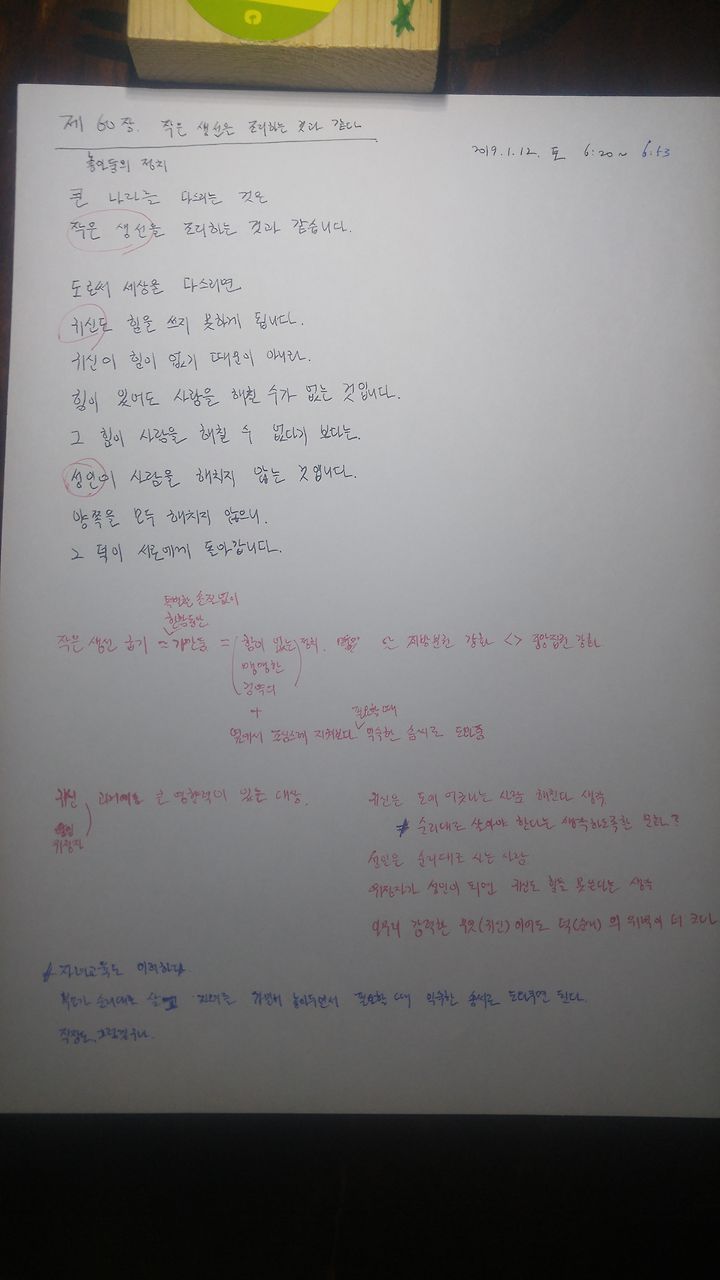 제 60장. 작은 생선을 조리하는 것과 같다
2019.1.12. 토 6:20~ 6:53
큰 나라를 다스리는 것은
작은 생선을 조리하는 것과 같습니다.
도로써 세상을 다스리면
귀신도 힘을 쓰지 못하게 됩니다.
귀신이 힘이 없기 때문이 아니라.
힘이 있어도 사람을 해칠 수가 없는 것입니다.
그 힘이 사람을 해칠 수 없다기 보다는.
성인이 사람을 해치지 않는 것입니다.
양쪽을 모두 해치지 않으니.
그 덕이 서로에게 돌아갑니다.
특별한 손질없이
작은 생선 굽기 = 가만둠 = 힘이 없는 정치. 지방분권 강화 <> 중앙집권 강화
맹맹한
권력의
+
필요할 때
옆에서 지켜보다 익숙한 솜씨로 도와줌
귀신 큰 영향력이 있는 대상.
위정자
귀신은 도에 어긋나는 사람 해친다 생각
순리대로 살아야 한다는 생각하도록한 문화?
성인은 순리대로 사는 사람
위정자가 성인이 되면 귀신도 힘을 못쓴다는 생각
아무리 강력한 무엇(귀신)이라도 덕(순리)의 위력이 더 크다
자녀교육도 이러하다.
부모가 순리대로 살고 자녀를 가만히 놓아두면서 필요할 때 익숙한 솜씨로 도와주면 된다.
직장도 그런거구나.